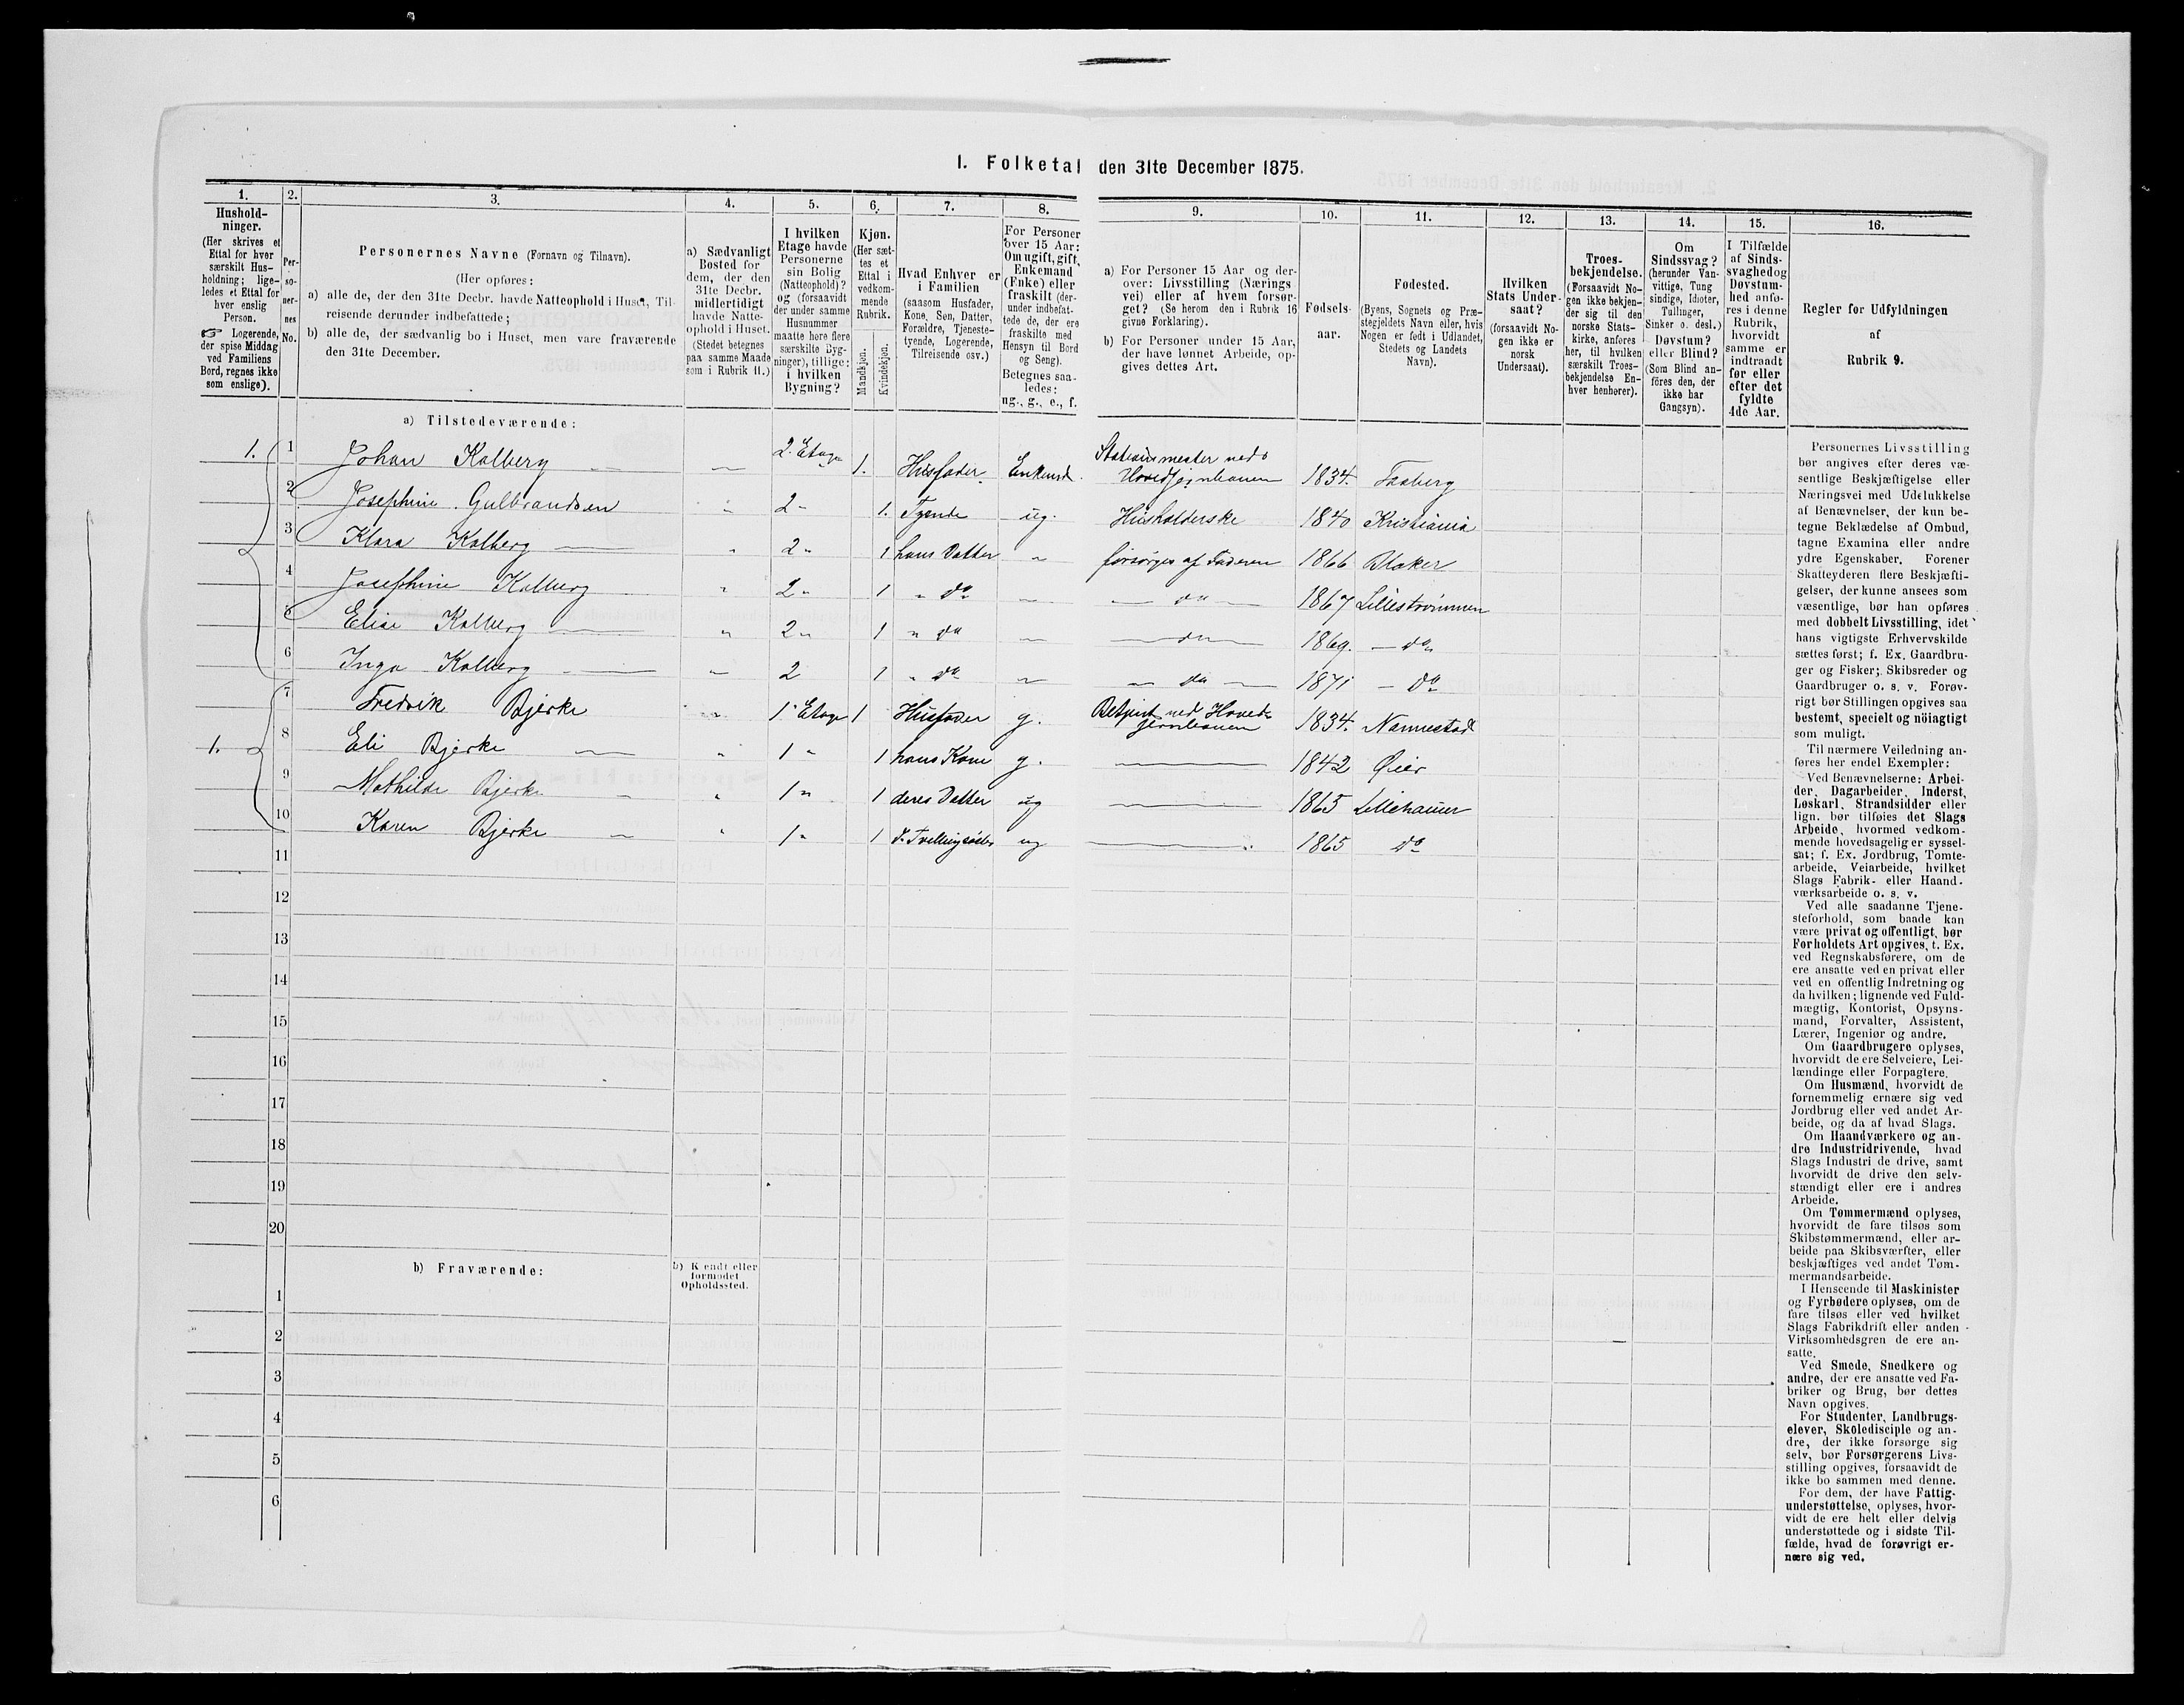 1. Folketal den 31te December 1875.
1. 2. 3. 4. 5. 6. 7. 8. 9. 10. 11. 12. 13. 14. 15. 16.
Hushold-
ninger.
(Her skrives et
Ettal for hver
særskilt Hus-
holdning; lige-
ledes et Ettal for
hver enslig
Person.
☞ Logerende,
der spise Middag
ved Familiens
Bord, regnes ikke
som enslige).
Per-
so-
ner-
nes
No.
Personernes Navne (Fornavn og Tilnavn).
(Her opføres:
a) alle de, der den 31te Decbr. havde Natteophold i Huset, Til-
reisende derunder indbefattede;
b) alle de, der sædvanlig bo i Huset, men vare fraværende
den 31te December.
a) Sædvanligt
Bosted for
dem, der den
31te Decbr.
midlertidigt
havde Natte-
ophold i Huset.
(Stedet betegnes
paa samme Maade
som i Rubrik 11.)
I hvilken
Etage havde
Personerne
sin Bolig
(Natteophold)?
og (forsaavidt
der under samme
Husnummer
maatte høre flere
særskilte Byg-
ninger), tillige:
i hvilken
Bygning?
Kjøn.
(Her sæt-
tes et
Ettal i
vedkom-
mende
Rubrik.
Mandkjøn.
Kvindekjøn.
Hvad Enhver er
i Familien
(saasom Husfader,
Kone, Søn, Datter,
Forældre, Tjeneste-
tyende, Logerende,
Tilreisende osv.)
For Personer
over 15 Aar:
Om ugift, gift,
Enkemand
(Enke) eller
fraskilt (der-
under indbefat-
tede de, der ere
fraskilte med
Hensyn til Bord
og Seng).
Betegnes saa-
ledes:
ug., g., e., f.
a) For Personer 15 Aar og der-
over: Livsstilling (Nærings
vei) eller af hvem forsør-
get? (Se herom den i Rubrik 16
givne Forklaring).
b) For Personer under 15 Aar,
der have lønnet Arbeide, op-
gives dettes Art.
Fødsels-
aar.
Fødested.
(Byens, Sognets og Præ-
stegjeldets Navn eller, hvis
Nogen er født i Udlandet,
Stedets og Landets
Navn).
Hvilken
Stats Under-
saat?
(forsaavidt No-
gen ikke er
norsk
Undersaat).
Troes-
bekjendelse.
(Forsaavidt No-
gen ikke bekjen-
der sig til den
norske Stats-
kirke, anføres
her, til hvilken
særskilt Troes-
bekjendelse En-
hver henhører).
Om
Sindssvag?
(herunder Van-
vittige, Tung
sindige, Idioter,
Tullinger,
Sinker o. desl.)
Døvstum?
eller Blind?
(Som Blind an-
føres den, der
ikke har
Gangsyn).
I Tilfælde
af Sinds-
svaghed og
Døvstum-
hed anfø-
res i denne
Rubrik,
hvorvidt
samme er
indtraadt
før eller
efter det
fyldte
4de Aar.
Regler for Udfyldningen
af
Rubrik 9.
a) Tilstedeværende:
1. 1 Johan Kolberg 2. Etage 1. Husfader Enkemd. Stationsmester ved Hovedjernbanen 1834. Faaberg
2 Josephine Gulbrandsen 2 " 1. Tyende ug. Husholderske 1840 Kristiania
3 Klara Kolberg " 2 " 1 hans Datter " forsørges af Faderen 1866 Blaker
4 Josephine Kolberg " 2 " 1 " do " do 1867 Lillestrømmen
5 Elise Kolberg " 2 " 1 " do " do 1869. do
6 Inga Kolberg " 2 1 " do " do 1871 do
7 Fredrik Bjerke " 1 Etage 1 Husfader g. Betjent ved Hoved-jernbanen 1834. Nannestad
1. 8 Eli Bjerke " 1 " 1 hans Kone g. 1842 Øier
9 Mathilde Bjerke " 1 " 1 deres Datter ug 1865 Lillehamer
10 Karen Bjerke " 1 " 1 d. Tvillingsøster ug 1865 do
11
12
13
14
15
16
17
18
19
20
b) Fraværende:
b) Kendt eller
formodet
Opholdssted.
1
2
3
4
5
6
Personernes Livsstilling
bør angives efter deres væ-
sentlige Beskjæftigelse eller
Næringsvei med Udelukkelse
af Benævnelser, der kun be-
tegne Beklædelse af Ombud,
tagne Examina eller andre
ydre Egenskaber. Forener
Skatteyderen flere Beskjæfti-
gelser, der kunne ansees som
væsentlige, bør han opføres
med dobbelt Livsstilling, idet
hans vigtigste Erhvervskilde
sættes først; f. Ex. Gaardbru-
ger og Fisker; Skibsreder og
Gaardbruger o. s. v. Forøv-
rigt bør Stillingen opgives saa
bestemt, specielt og nöiagtigt
som muligt.
Til nærmere Veiledning an-
føres her endel Exempler:
Ved Benævnelserne: Arbei-
der, Dagarbeider, Inderst,
Løskarl, Strandsidder eller
lign. bør tilføies det Slags
Arbeide, hvormed vedkom-
mende hovedsagelig er syssel-
sat; f. Ex. Jordbrug, Tomte-
arbeide, Veiarbeide, hvilket
Slags Fabrik- eller Haand-
værksarbeide o. s. v.
Ved alle saadanne Tjene-
steforhold, som baade kan
være privat og offentligt, bør
Forholdets Art opgives, t. Ex.
ved Regnskabsførere, om de
ere ansatte ved en privat eller
ved en offentlig Indretning og
da hvilken; lignende ved Fuld-
mægtig, Kontorist, Opsyns-
mand, Forvalter, Assistent,
Lærer, Ingeniør og andre.
Om Gaardbrugere oplyses,
hvorvidt de ere Selveiere, Lei-
lændinge eller Forpagtere.
Om Husmænd, hvorvidt de
fornemmelig ernære sig ved
Jordbrug eller ved andet Ar-
beide, og da af hvad Slags.
Om Haandværkere og an-
dre Industridrivende, hvad
Slags Industri de drive, samt
hvorvidt de drive den selv-
stændigt eller ere i andres
Arbeide.
Om Tømmermænd oplyses,
hvorvidt de fare tilsøs som
Skibstømmermænd, eller ar-
beide paa Skibsværfter, eller
beskjæftiges ved andet Tøm-
mermandsarbeide.
I Henseende til Maskinister
og Fyrbødere oplyses, om de
fare tilsøs eller ved hvilket
Slags Fabrikdrift eller anden
Virksomhedsgren de ere an-
satte.
Ved Smede, Snedkere og
andre, der ere ansatte ved Fa-
briker og Brug, bør dettes
Navn opgives.
For Studenter, Landbrugs-
elever, Skoledisciple og an-
dre, der ikke forsørge sig
selv, bør Forsørgerens Livs-
stilling opgives, forsaavidt de
ikke bo sammen med denne.
For dem, der have Fattig-
understøttelse, oplyses, hvor-
vidt de ere helt eller delvis
understøttede og i sidste Til-
fælde, hvad de forøvrigt er-
nære sig ved.